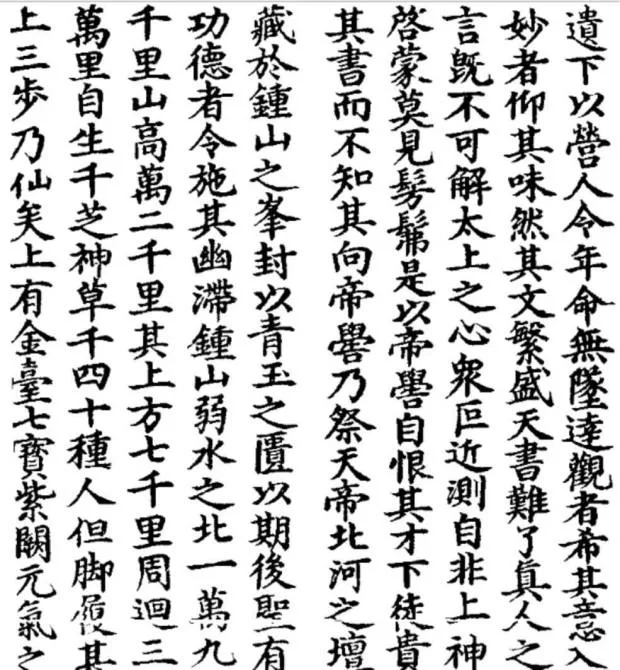 遺下以營人令年命無墜達觀者希其意入
妙者仰其味然其文繁盛天書難了真人之
言旣不可解太上之心衆叵近測自非上神
啓蒙莫見髣髴是以帝嚳自恨其才下徒貴
其書而不知其向帝嚳乃祭天帝北河之壇
藏於鍾山之峯封以青玉之匱以期後聖有
功德者令施其幽滯鍾山弱水之北一萬九
千里山高萬二千里其上方七千里周迴三
萬里自生千芝神草千四十種人但脚履其
上三步乃仙矣上有金臺七寶紫闕元氣之